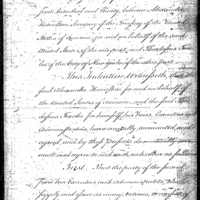 one hundred and Ninety between Alexander
Hamilton Secretary of the Treasury of the United
States of America for and on behalf of the said
United States of the one part, and Theodosius Fow-
ler of the City of New York of the other part
This Indenture Witnesseth, that the
said Alexander Hamilton for and on behalf of
the United States of America and the said Theo-
dosius Fowler for himself his Heirs, Executors and
Administrators, have mutually covenanted and
agreed, and by these Presents do mutually cove-
nant and agree to and with each other as follows
First. That the party of the second
part his Executors and Administrators, shall
supply and